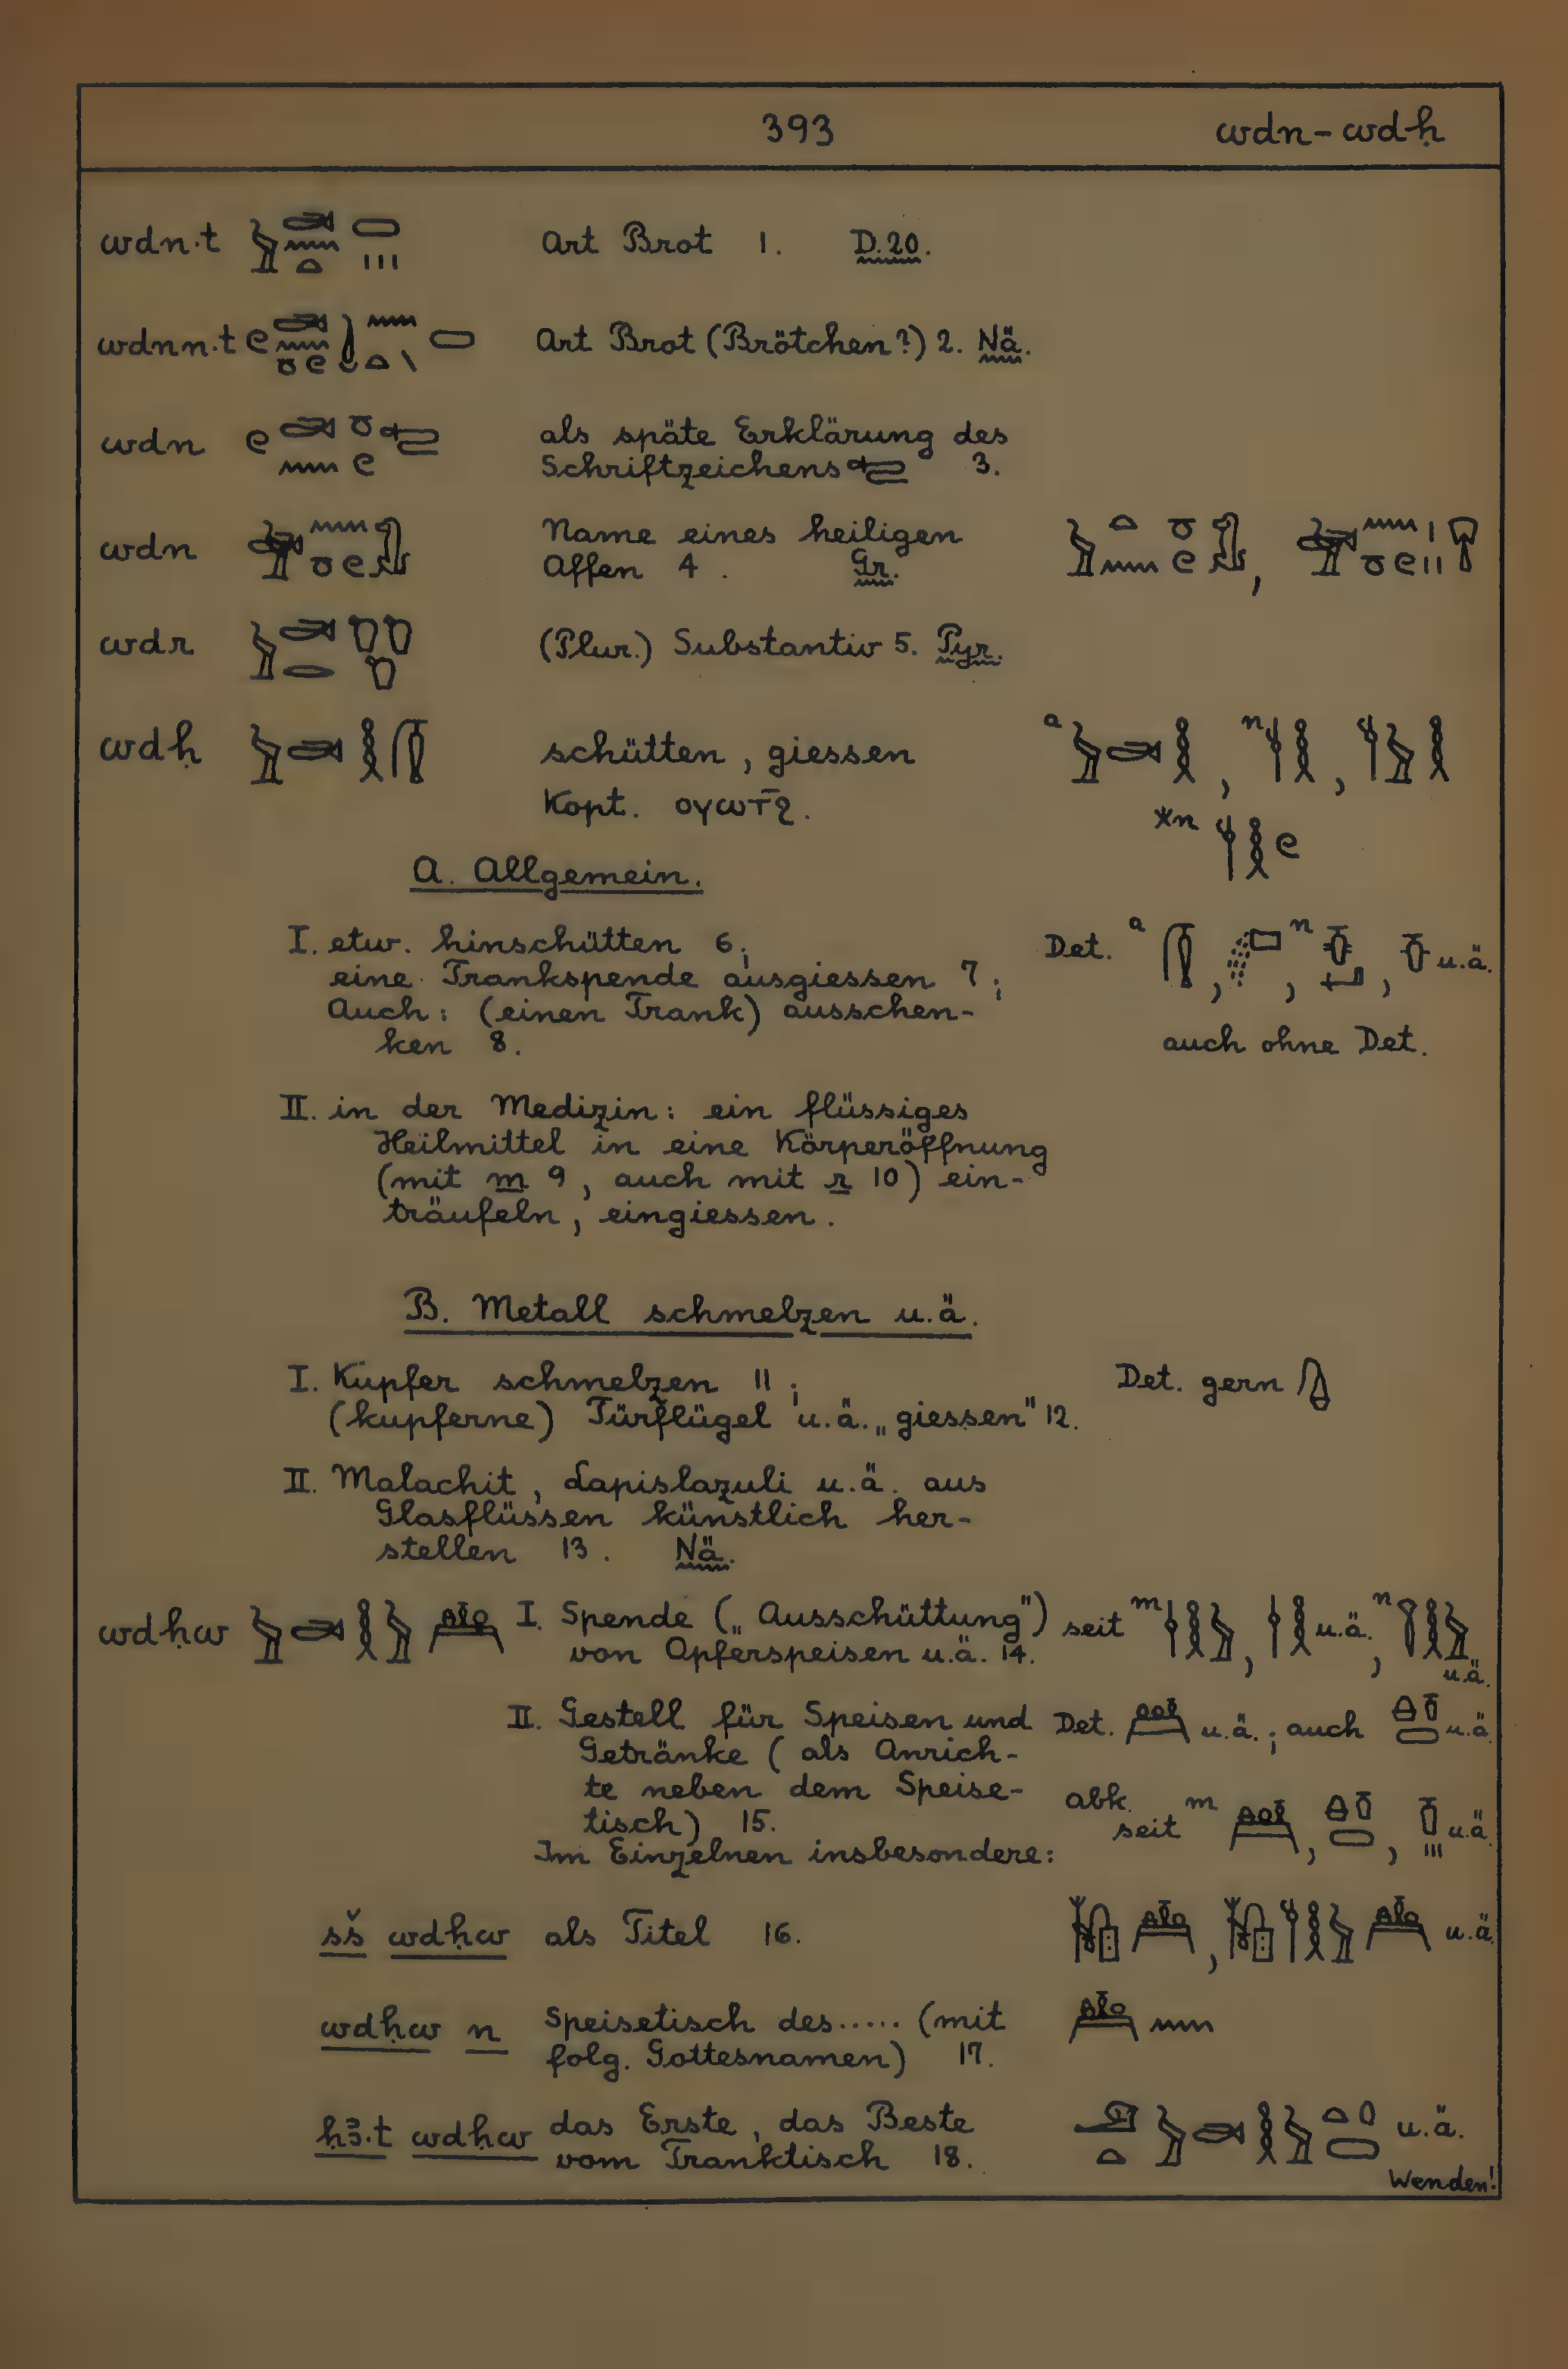 393 wdn - wdḥ
wdn.t Art Brot 1. D.20.
wdnn.t Art Brot (Brötchen?) 2. Nä.
wdn als späte Erklärung des
Schriftzeichens 3.
wdn Name eines heiligen
Affen 4. Gr.
wdr (Plur.) Substantiv 5. Pyr.
wdḥ schütten, giessen a n
Kopt. ⲟⲩⲱⲧϩ̄. *n
A. Allgemein.
I. etw. hinschütten 6; Det. a n u.ä.
eine Trankspende ausgiessen 7;
Auch: (einen Trank) ausschen-
ken 8. auch ohne Det.
II. in der Medizin: ein flüssiges
Heilmittel in eine Körperöffnung
(mit m 9, auch mit r 10) ein-
träufeln, eingiessen.
B. Metall schmelzen u.ä.
I. Kupfer schmelzen 11; Det. gern
(kupferne) Türflügel u.ä. „giessen" 12.
II. Malachit, Lapislazuli u.ä. aus
Glasflüssen künstlich her-
stellen 13. Nä.
wdḥw I. Spende („Ausschüttung") seit m u.ä. n
von Opferspeisen u.ä. 14. u.ä.
II. Gestell für Speisen und Det. u.ä.; auch u.ä.
Getränke (als Anrich-
te neben dem Speise- abk.
tisch) 15. seit m u.ä.
Im Einzelnen insbesondere:
sš wdḥw als Titel 16. u.ä.
wdḥw n Speisetisch des..... (mit
folg. Gottesnamen) 17.
ḥꜣ.t wdḥw das Erste, das Beste u.ä.
vom Tranktisch 18.
Wenden!